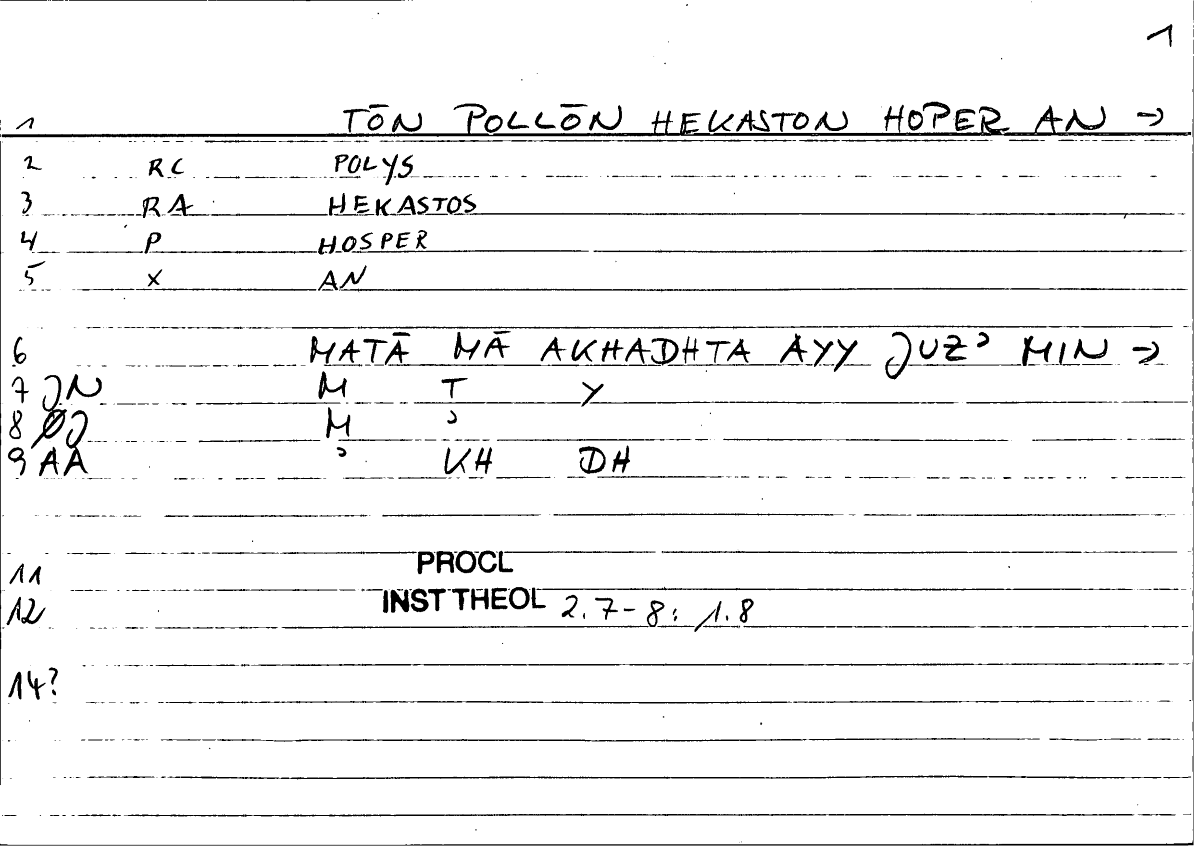 1
1 TŌN POLLŌN HEKASTON HOPER AN →
2 RC POLYS
3 RA HEKASTOS
4 P HOSPER
5 X AN
6 MATĀ MĀ AKHADHTA AYY JUZʾ MIN →
7 JN M T Y
8 ØJ M ʾ
9 AA ʾ KH DH
11 PROCL
12 INST THEOL 2.7-8: 1.8
14?